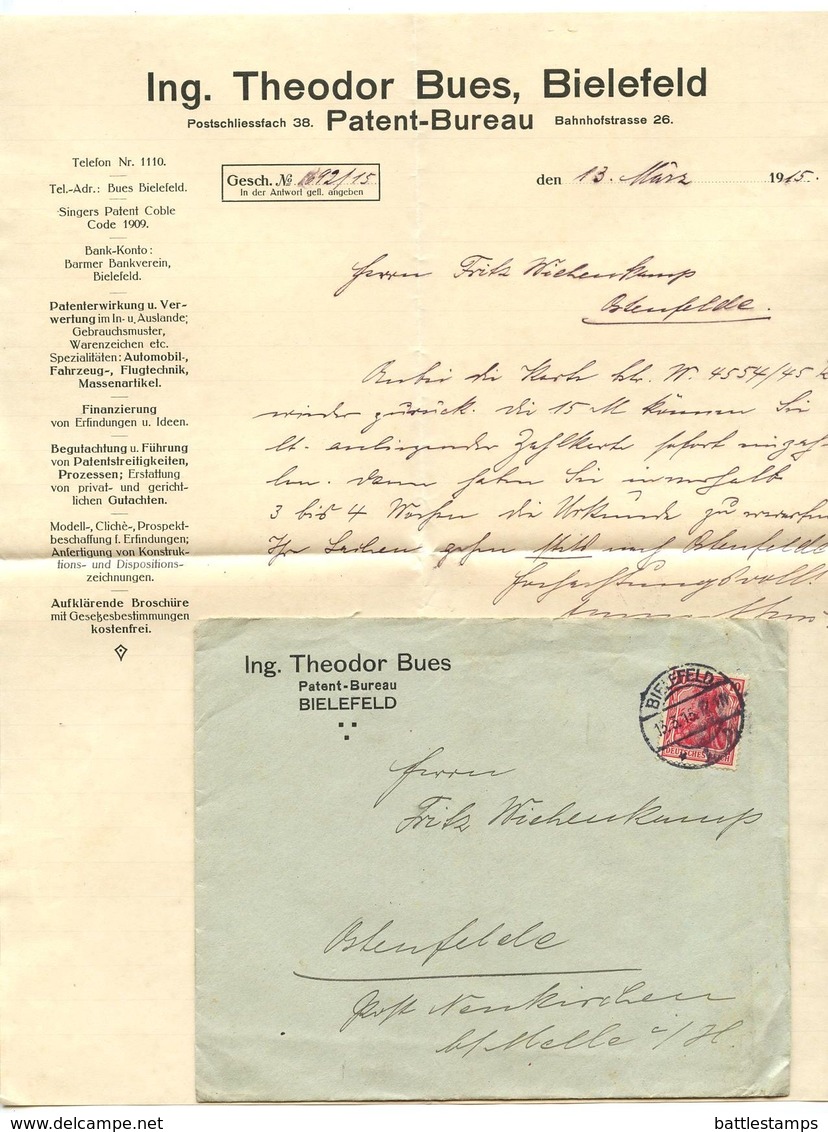 Ing. Theodor Bues, Bielefeld
Postschliessfach 38. Patent-Bureau Bahnhofstrasse 26.
Telefon Nr. 1110.
Tel.-Adr.: Bues Bielefeld.
Singers Patent Coble
Code 1909.
Bank-Konto:
Barmer Bankverein,
Bielefeld.
Patenterwirkung u. Ver-
wertung im In- u. Auslande;
Gebrauchsmuster,
Warenzeichen etc.
Spezialitäten: Automobil-,
Fahrzeug-, Flugtechnik,
Massenartikel.
Finanzierung
von Erfindungen u. Ideen.
Begutachtung u. Führung
von Patentstreitigkeiten,
Prozessen; Erstattung
von privat- und gericht-
lichen Gutachten.
Modell-, Clichè-, Prospekt-
beschaffung f. Erfindungen;
Anfertigung von Konstruk-
tions- und Dispositions-
zeichnungen.
Aufklärende Broschüre
mit Gesetzesbestimmungen
kostenfrei.
Gesch. № 1692/15
In der Antwort gefl. angeben
den 13. März 1915.
Herrn Fritz Wiehenkamp
Ostenfelde.
Anbei die Karte btr. W. 4554/45
wieder zurück. Die 15 M können Sie
lt. anliegender Zahlkarte sofort einzah
len. Dann haben Sie innerhalb
3 bis 4 Wochen die Urkunde zu erwarten
Ihr Sachen gehen nach Ostenfelde
Hochachtungsvoll!
Ing. Theodor Bues
Patent-Bureau
BIELEFELD
BIELEFELD
13.3.15
DEUTSCHES REICH
Herrn
Fritz Wiehenkamp
Ostenfelde
Post Neukirchen
b/Melle i/H.
delcampe.net
battlestamps